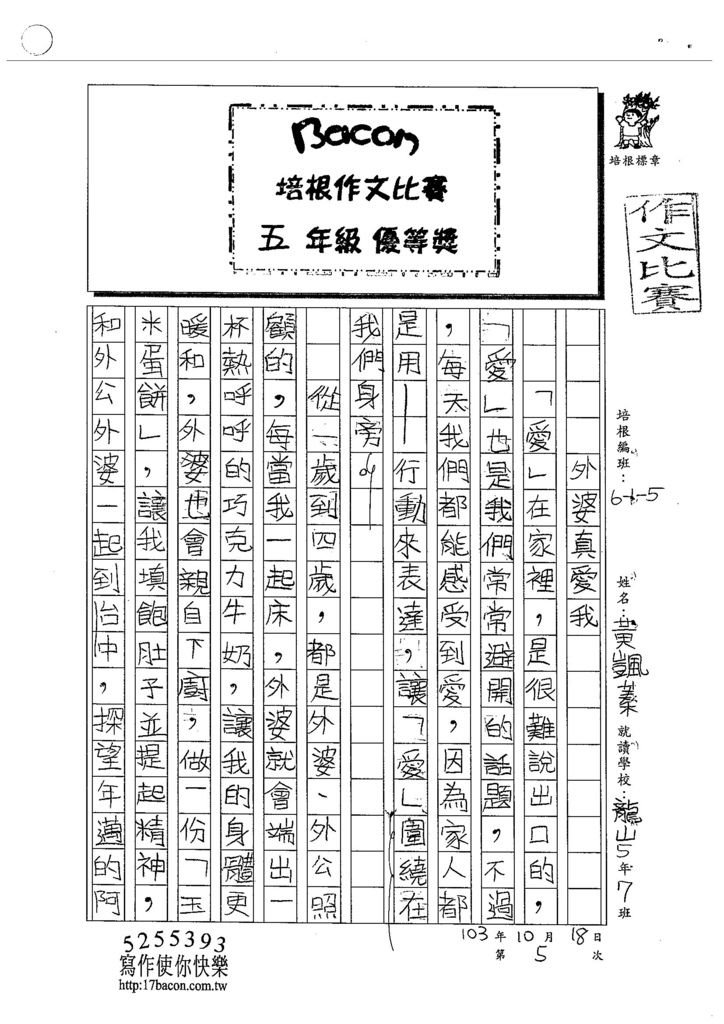 Bacon
培根作文比賽
五 年級 優等獎
培根標章
作文比賽
培根編班：6-1-5
姓名：黃颯蓁 就讀學校：龍山5年7班
外婆真愛我
「愛」在家裡，是很難說出口的，
「愛」也是我們常常避開的話題，不過
，每天我們都能感受到愛，因為家人都
是用——行動來表達，讓「愛」圍繞在
我們身旁。
從一歲到四歲，都是外婆、外公照
顧的，每當我一起床，外婆就會端出一
杯熱呼呼的巧克力牛奶，讓我的身體更
暖和，外婆也會親自下廚，做一份「玉
米蛋餅」，讓我填飽肚子並提起精神，
和外公外婆一起到台中，探望年邁的阿
103年10月18日
第5次
5255393
寫作使你快樂
http:17bacon.com.tw